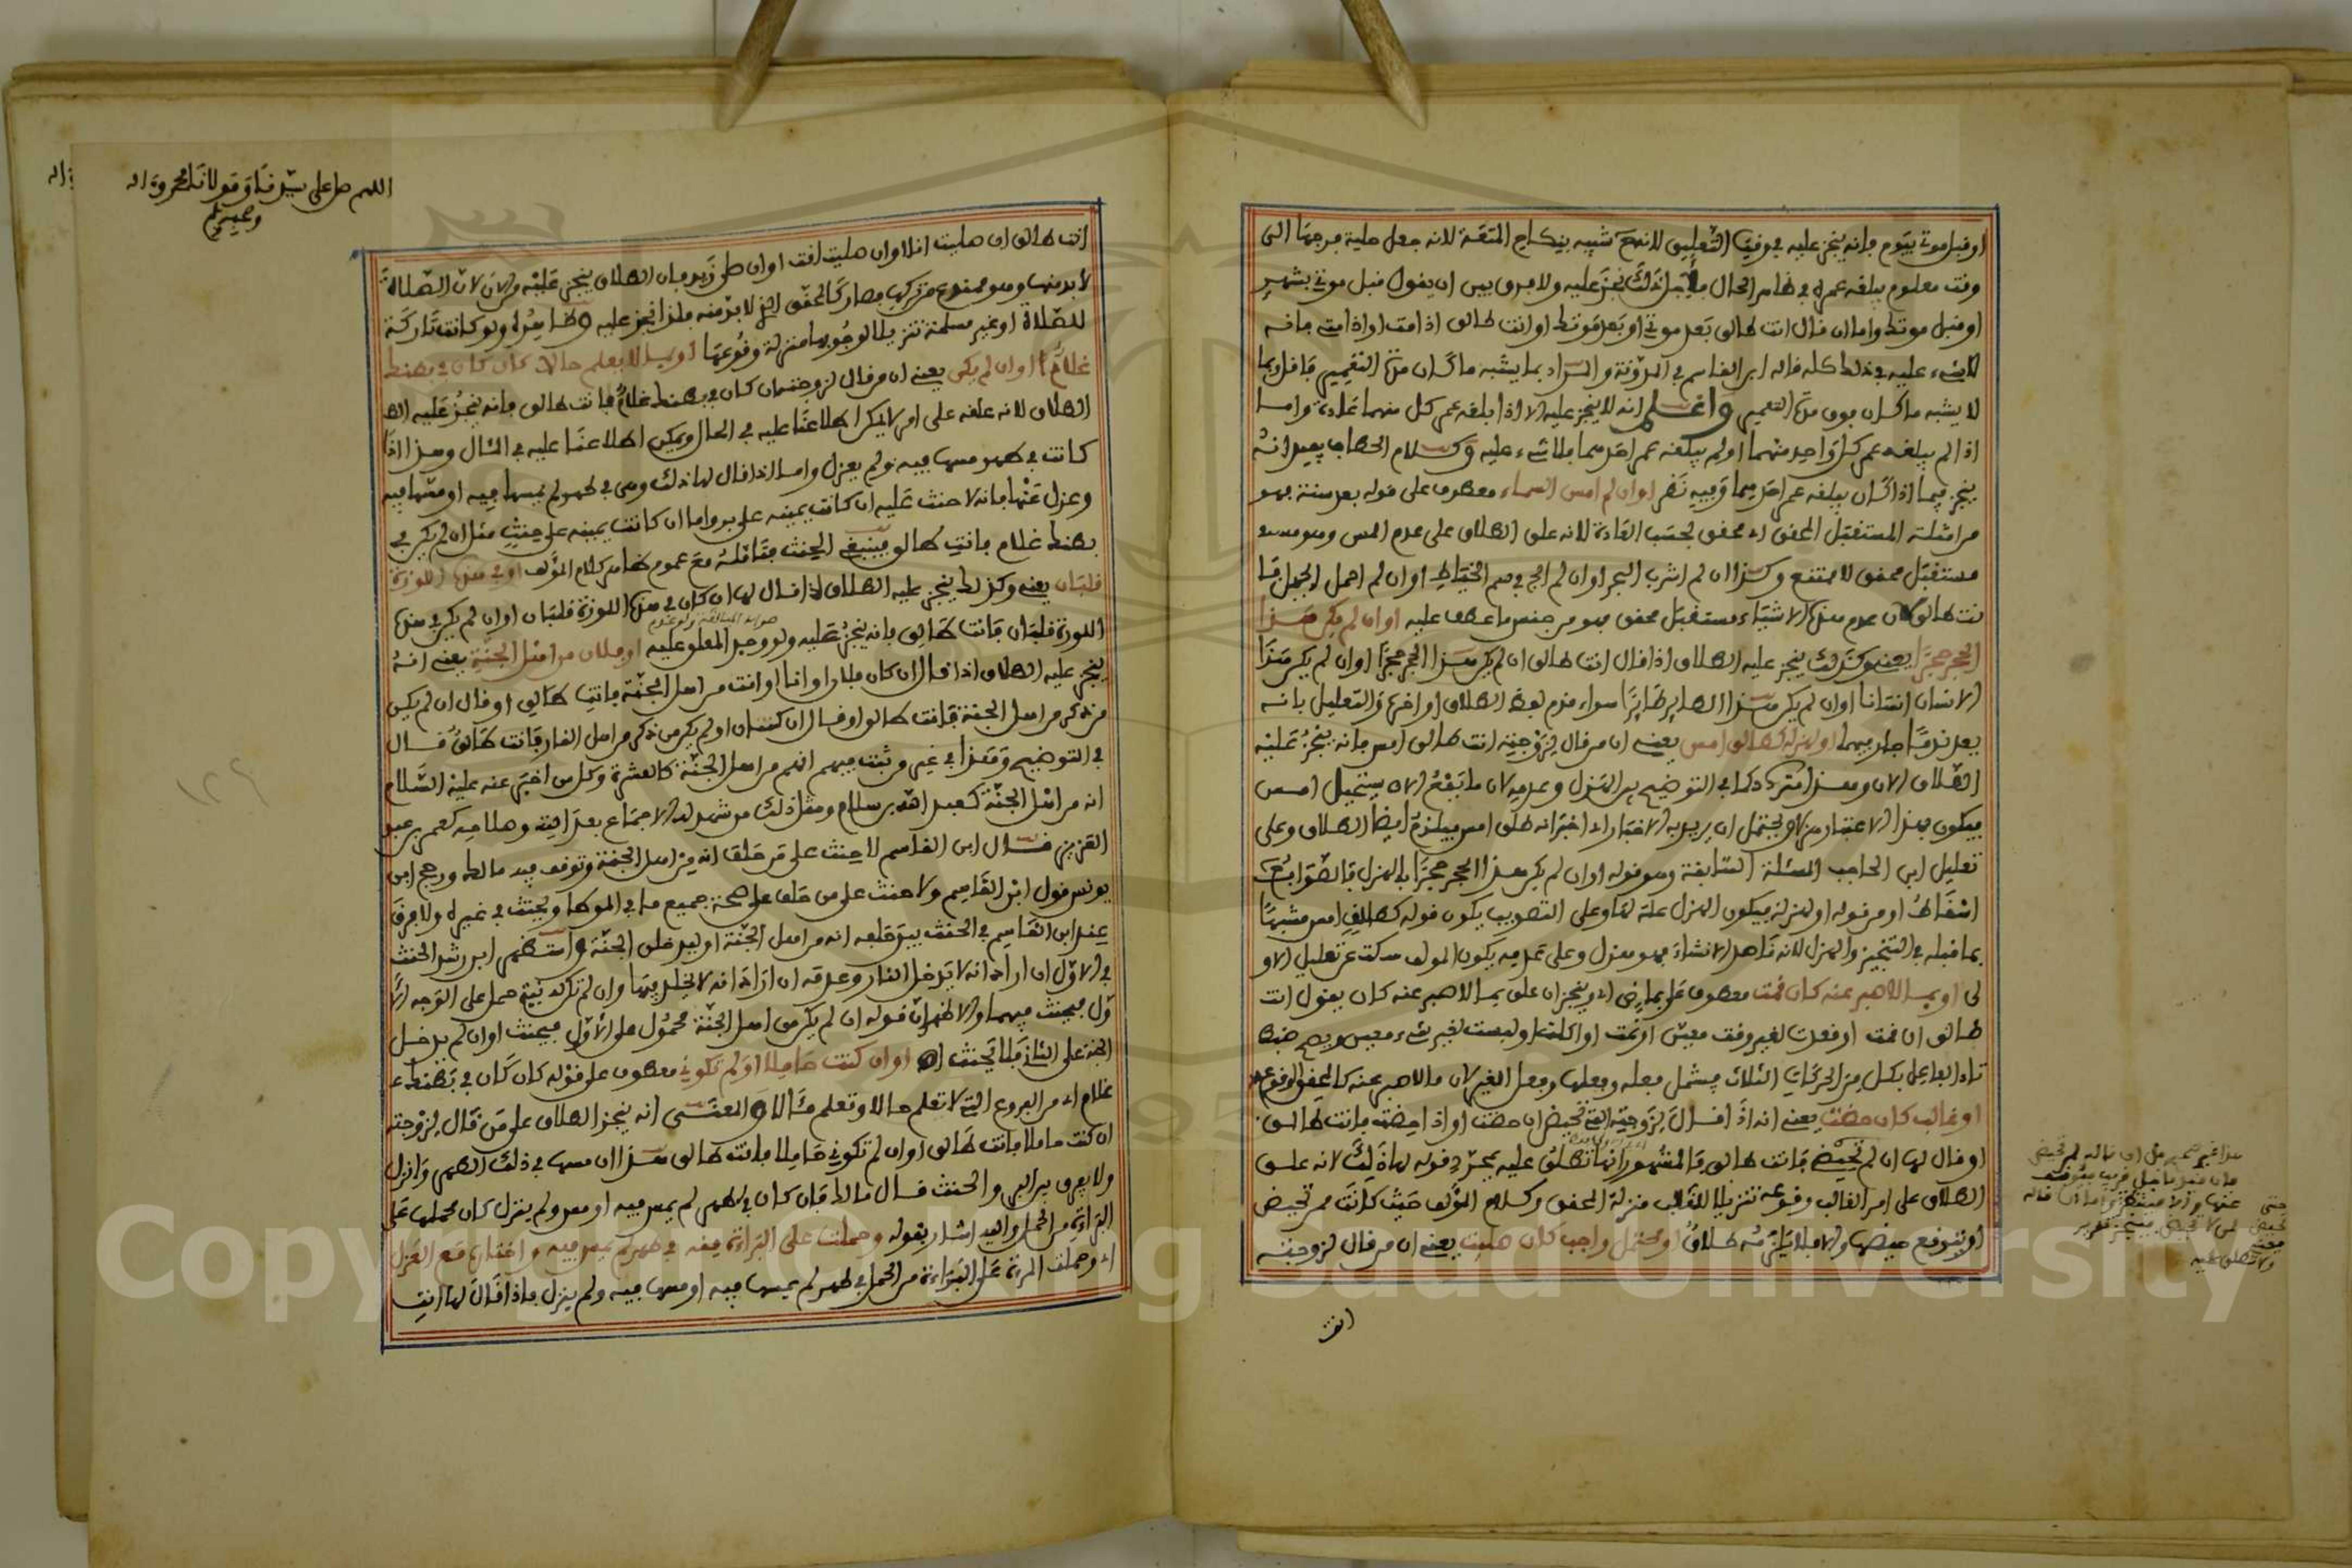 او قبل موتي بيوم فانه ينجز عليه في وقت التعليق لانه شبيه بنكاح المتعة لانه جعل حلية فرجها الى
وقت معلوم يبلغه عمره في ظاهر الحال فلاجل ذلك نجز عليه ولا فرق بين ان يقول قبل موتي بشهر
او قبل موتك واما ان قال انت طالق بعد موتي او بعد موتك او انت طالق اذا مت او اذا متي فانه
لا شيء عليه في ذلك كله قاله ابن القاسم في المدونة والمراد بما يشبه ما كان مدة التعمير فاقل وبما
لا يشبه ما كان فوق مدة التعمير واعلم انه لا ينجز عليه الا اذا بلغه عمر كل منهما عادة واما
اذا لم يبلغه عمر كل واحد منهما او لم يبلغه عمر احدهما فلا شيء عليه وكلام الحطاب يفيد انه
ينجز فيما اذا كان يبلغه عمر احدهما وفيه نظر او ان لم امس السماء معطوف على قوله بعد سنة فهو
من امثلة المستقبل المحقق اي محقق بحسب العادة لانه علق الطلاق على عدم المس وهو مسه
مستقبل محقق لامتنع وكذا ان لم اشرب البحر او ان لم الج في سم الخياط او ان لم احمل الجبل فا
نت طالق لان عدم هذه الاشياء مستقبل محقق فهو من جنس ما عطف عليه او ان لم يكن هذا
الحجر حجرا يعني وكذلك ينجز عليه الطلاق اذا قال انت طالق ان لم يكن هذا الحجر حجرا او ان لم يكن هذا
الانسان انسانا او ان لم يكن هذا الطاير طايرا سواء قدم لفظ الطلاق او اخره والتعليل بانه
يعد ندما جار فيهما او لهزله كطالق امس يعني ان من قال لزوجته انت طالق امس فانه ينجز عليه
الطلاق الان وهذا مشترك كما في التوضيح بين الهزل وعدمه لان ما يقع الان يستحيل امس
فيكون بهذا الاعتبار هزلا ويحتمل ان يريد به الاخبار اي اخبر انه طلق امس فيلزمه ايضا الطلاق وعلى
تعليل ابن الحاجب المسئلة السابقة وهو قوله او ان لم يكن هذا الحجر حجرا بالهزل فالصواب
اسقاط او من قوله او لهزله فيكون الهزل علة لها وعلى التصويب يكون قوله كطالق امس مشبها
بما قبله في التنجيز والهزل لانه ناهل الانشاء فهو هزل وعلى عدمه يكون المولف سكت عن تعليل الاو
لى او بما لا صبر عنه كان قمت معطوف على بماض اي وينجز ان علق بما لا صبر عنه كان يقول انت
طالق ان قمت او قعدت لغير وقت معين او نمت او اكلت او لبست لغير شيء معين ويصح ضبط
تاء الفاعل بكل من الحركات الثلاث فيشمل فعله وفعلها وفعل الغير لان ما لا صبر عنه كالمحقق الوقوع
او غالب كان حضت يعني انه اذا قال لزوجته التي تحيض ان حضت او اذا حضت فانت طالق
او قال لها ان لم تحيضي فانت طالق فالمشهور انها تطلق عليه بمجرد قوله لها ذلك لانه علق
الطلاق على امر الغالب وقوعه تنزيلا للغالب منزلة المحقق وكلام المولف حيث كانت ممن تحيض
او تتوقع حيضها والا فلا يلزمه طلاق او محتمل واجب كان صليت يعني ان من قال لزوجته
انت
انت طالق ان صليت انا او ان صليت انت او ان صلى زيد فان الطلاق ينجز عليه من الان لان الصلاة
لا بد منها وهو ممنوع من تركها فصار كالمحقق الذي لا بد منه فلذا نجز عليه وظاهره ولو كانت تاركة
للصلاة او غير مسلمة تنزيلا لوجوبها منزلة وقوعها او بما لا يعلم حالا كان كان في بطنك
غلام او ان لم يكن يعني ان من قال لزوجته ان كان في بطنك غلام فانت طالق فانه ينجز عليه الط
الطلاق لانه علقه على امر لا يمكن اطلاعنا عليه في الحال ويمكن اطلاعنا عليه في المئال وهذا اذا
كانت في طهر مسها فيه ولم يعزل واما اذا قال لها ذلك وهي في طهر لم يمسها فيه او مسها فيه
وعزل عنها فانه لا حنث عليه ان كانت يمينه على بر واما ان كانت يمينه على حنث مثل ان لم يكن في
بطنك غلام فانت طالق فينبغي الحنث مقابلة مع عموم ظاهر كلام المؤلف او في هذه اللوزة
قلبان يعني وكذلك ينجز عليه الطلاق اذا قال لها ان كان في هذه اللوزة قلبان او ان لم يكن في هذه
اللوزة قلبان فانت طالق فانه ينجز عليه ولو وجد المعلق عليه او فلان من اهل الجنة يعني انه
ينجز عليه الطلاق اذا قال ان كان فلان او انا او انت من اهل الجنة فانت طالق او قال ان لم يكن
من ذكر من اهل الجنة فانت طالق او قال ان كنت او لم يكن من ذكر من اهل النار فانت طالق قال
في التوضيح وهذا في غير من ثبت فيهم انهم من اهل الجنة كالعشرة وكل من اخبر عنه عليه السلام
انه من اهل الجنة كعبد الله بن سلام ومثل ذلك من شهد له الاجماع بعدالته وصلاحه كعمر بن عبد
العزيز قال ابن القاسم لا حنث على من حلف انه من اهل الجنة وتوقف فيه مالك ورجح ابن
يونس قول ابن القاسم ولا حنث على من حلف على صحة جميع ما في الموطا ويحنث في غيره ولا فرق
عند ابن القاسم في الحنث بين حلفه انه من اهل الجنة او ليدخلن الجنة واستظهر ابن رشد الحنث
في الاول ان اراد انه لا يدخل النار وعدمه ان اراد انه لا يخلد فيها وان لم تكن له نية حمل على الوجه الا
ول فيحنث فيهما والاظهر ان قوله ان لم يكن من اهل الجنة محمول على الاول فيحنث او ان لم يدخل
الجنة على الثاني فلا يحنث او ان كنت حاملا او لم تكوني معطوف على قوله كان كان في بطنك
غلام اي من الفروع التي لا تعلم حالا وتعلم مئالا والمعنى انه ينجز الطلاق على من قال لزوجته
ان كنت حاملا فانت طالق او ان لم تكوني حاملا فانت طالق هذا ان مسها في ذلك الطهر وانزل
ولا فرق بين البر والحنث قال مالك فان كان في طهر لم يمس فيه او مس ولم ينزل كان محملها على
البراءة من الحمل واليه اشار بقوله وحملت على البراءة منه في طهر لم يمس فيه واختاره مع العزل
اي وحملت المرءة على البراءة من الحمل في طهر لم يمسها فيه او مسها فيه ولم ينزل فاذا قال لها انت
اللهم صل على سيدنا ومولانا محمد وءاله
وصحبه وسلم
Copyright © King Saud University